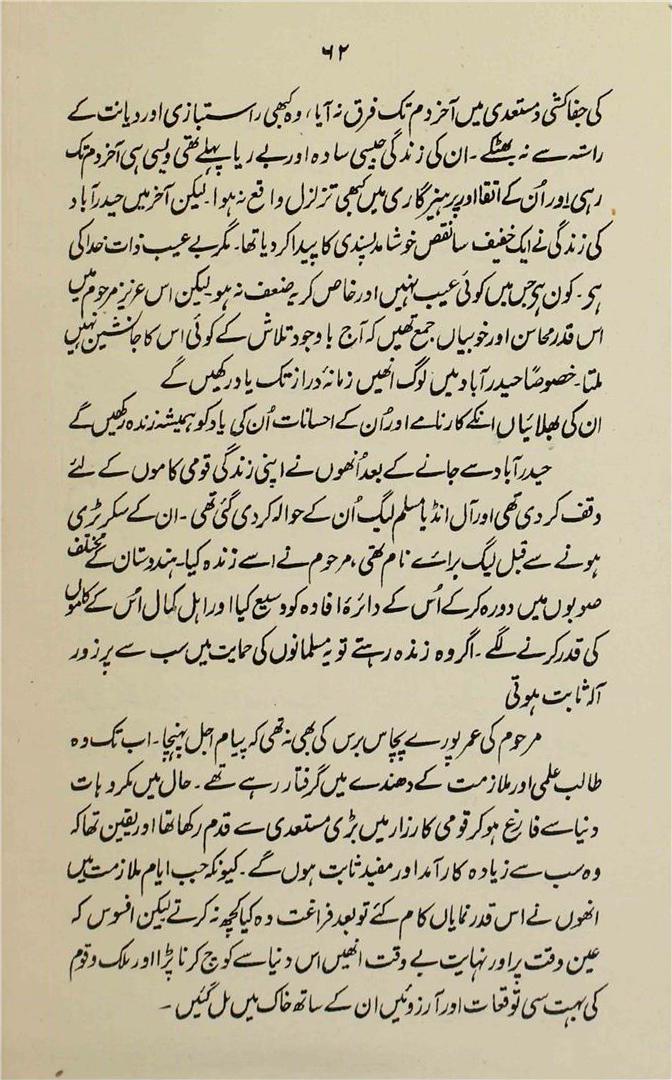 ۶۲
کی جفاکشی و مستعدی میں آخر دم تک فرق نہ آیا، وہ کبھی راستبازی اور دیانت کے
راستہ سے نہ بھٹکے ۔ ان کی زندگی جیسی سادہ اور بے ریا پہلے تھی ویسی ہی آخر دم تک
رہی اور اُن کے اتقا اور پرہیزگاری میں کبھی تزلزل واقع نہ ہوا۔ لیکن آخر میں حیدرآباد
کی زندگی نے ایک خفیف سا نقص خوشامد پسندی کا پیدا کر دیا تھا۔ مگر بے عیب ذات خدا کی
ہی۔ کون ہی جس میں کوئی عیب نہیں اور خاص کر یہ ضعف نہ ہو۔ لیکن اس عزیز مرحوم میں
اس قدر محاسن اور خوبیاں جمع تھیں کہ آج باوجود تلاش کے کوئی اس کا جانشین نہیں
ملتا۔ خصوصاً حیدرآباد میں لوگ انھیں زمانۂ دراز تک یاد رکھیں گے
ان کی بھلائیاں انکے کارنامے اور اُن کے احسانات اُن کی یاد کو ہمیشہ زندہ رکھیں گے
حیدرآباد سے جانے کے بعد اُنھوں نے اپنی زندگی قومی کاموں کے لئے
وقف کر دی تھی اور آل انڈیا مسلم لیگ اُن کے حوالہ کر دی گئی تھی ۔ ان کے سکرٹری
ہونے سے قبل لیگ برائے نام تھی، مرحوم نے اسے زندہ کیا۔ ہندوستان کے مختلف
صوبوں میں دورہ کر کے اُس کے دائرۂ افادہ کو وسیع کیا اور اہل کمال اُس کے کاموں
کی قدر کرنے لگے ۔ اگر وہ زندہ رہتے تو یہ مسلمانوں کی حمایت میں سب سے پرزور
آلہ ثابت ہوتی
مرحوم کی عمر پورے پچاس برس کی بھی نہ تھی کہ پیام اجل پہنچا۔ اب تک وہ
طالب علمی اور ملازمت کے دھندے میں گرفتار رہے تھے ۔ حال میں مکروہات
دنیا سے فارغ ہو کر قومی کارزار میں بڑی مستعدی سے قدم رکھا تھا اور یقین تھا کہ
وہ سب سے زیادہ کارآمد اور مفید ثابت ہوں گے ۔ کیونکہ جب ایام ملازمت میں
انھوں نے اس قدر نمایاں کام کئے تو بعد فراغت وہ کیا کچھ نہ کرتے لیکن افسوس کہ
عین وقت پر اور نہایت بے وقت انھیں اس دنیا سے کوچ کرنا پڑا اور ملک و قوم
کی بہت سی توقعات اور آرزوئیں ان کے ساتھ خاک میں مل گئیں ۔